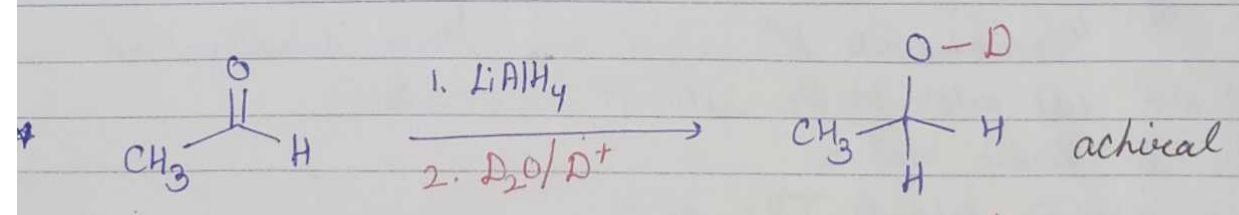 O
CH3 H
1. LiAlH4
2. D2O/D+
O-D
CH3 H
H
achiral